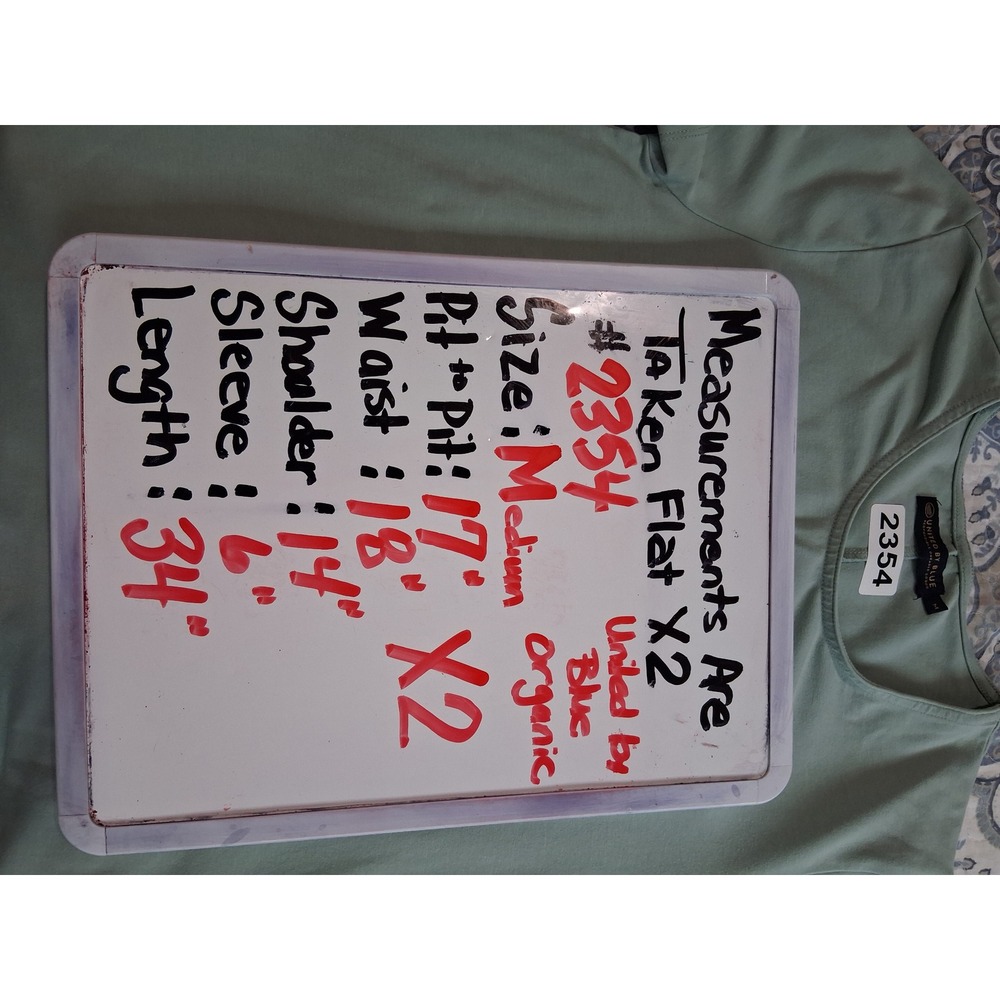 Measurements Are
Taken Flat X2
# 2354
United by
Blue
organic
Size: Medium
Pit to Pit: 17"
Waist: 18" X2
Shoulder: 14"
Sleeve: 6"
Length: 34"
2354
UNITED BY BLUE
M